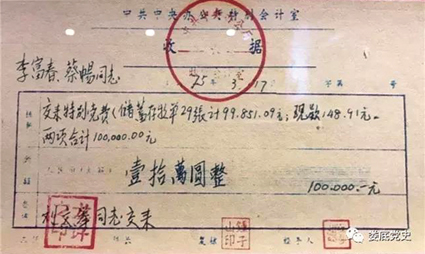 中共中央办公厅特别会计室
收 据
李富春、蔡暢同志
75年3月17
字第 号
交来特别党费(儲蓄存款单29張计99.851.09元;現款148.91元.
两项合计100,000.00元
壹拾萬圆整
100,000.—元
同志交来
复核
经手人
娄底党史